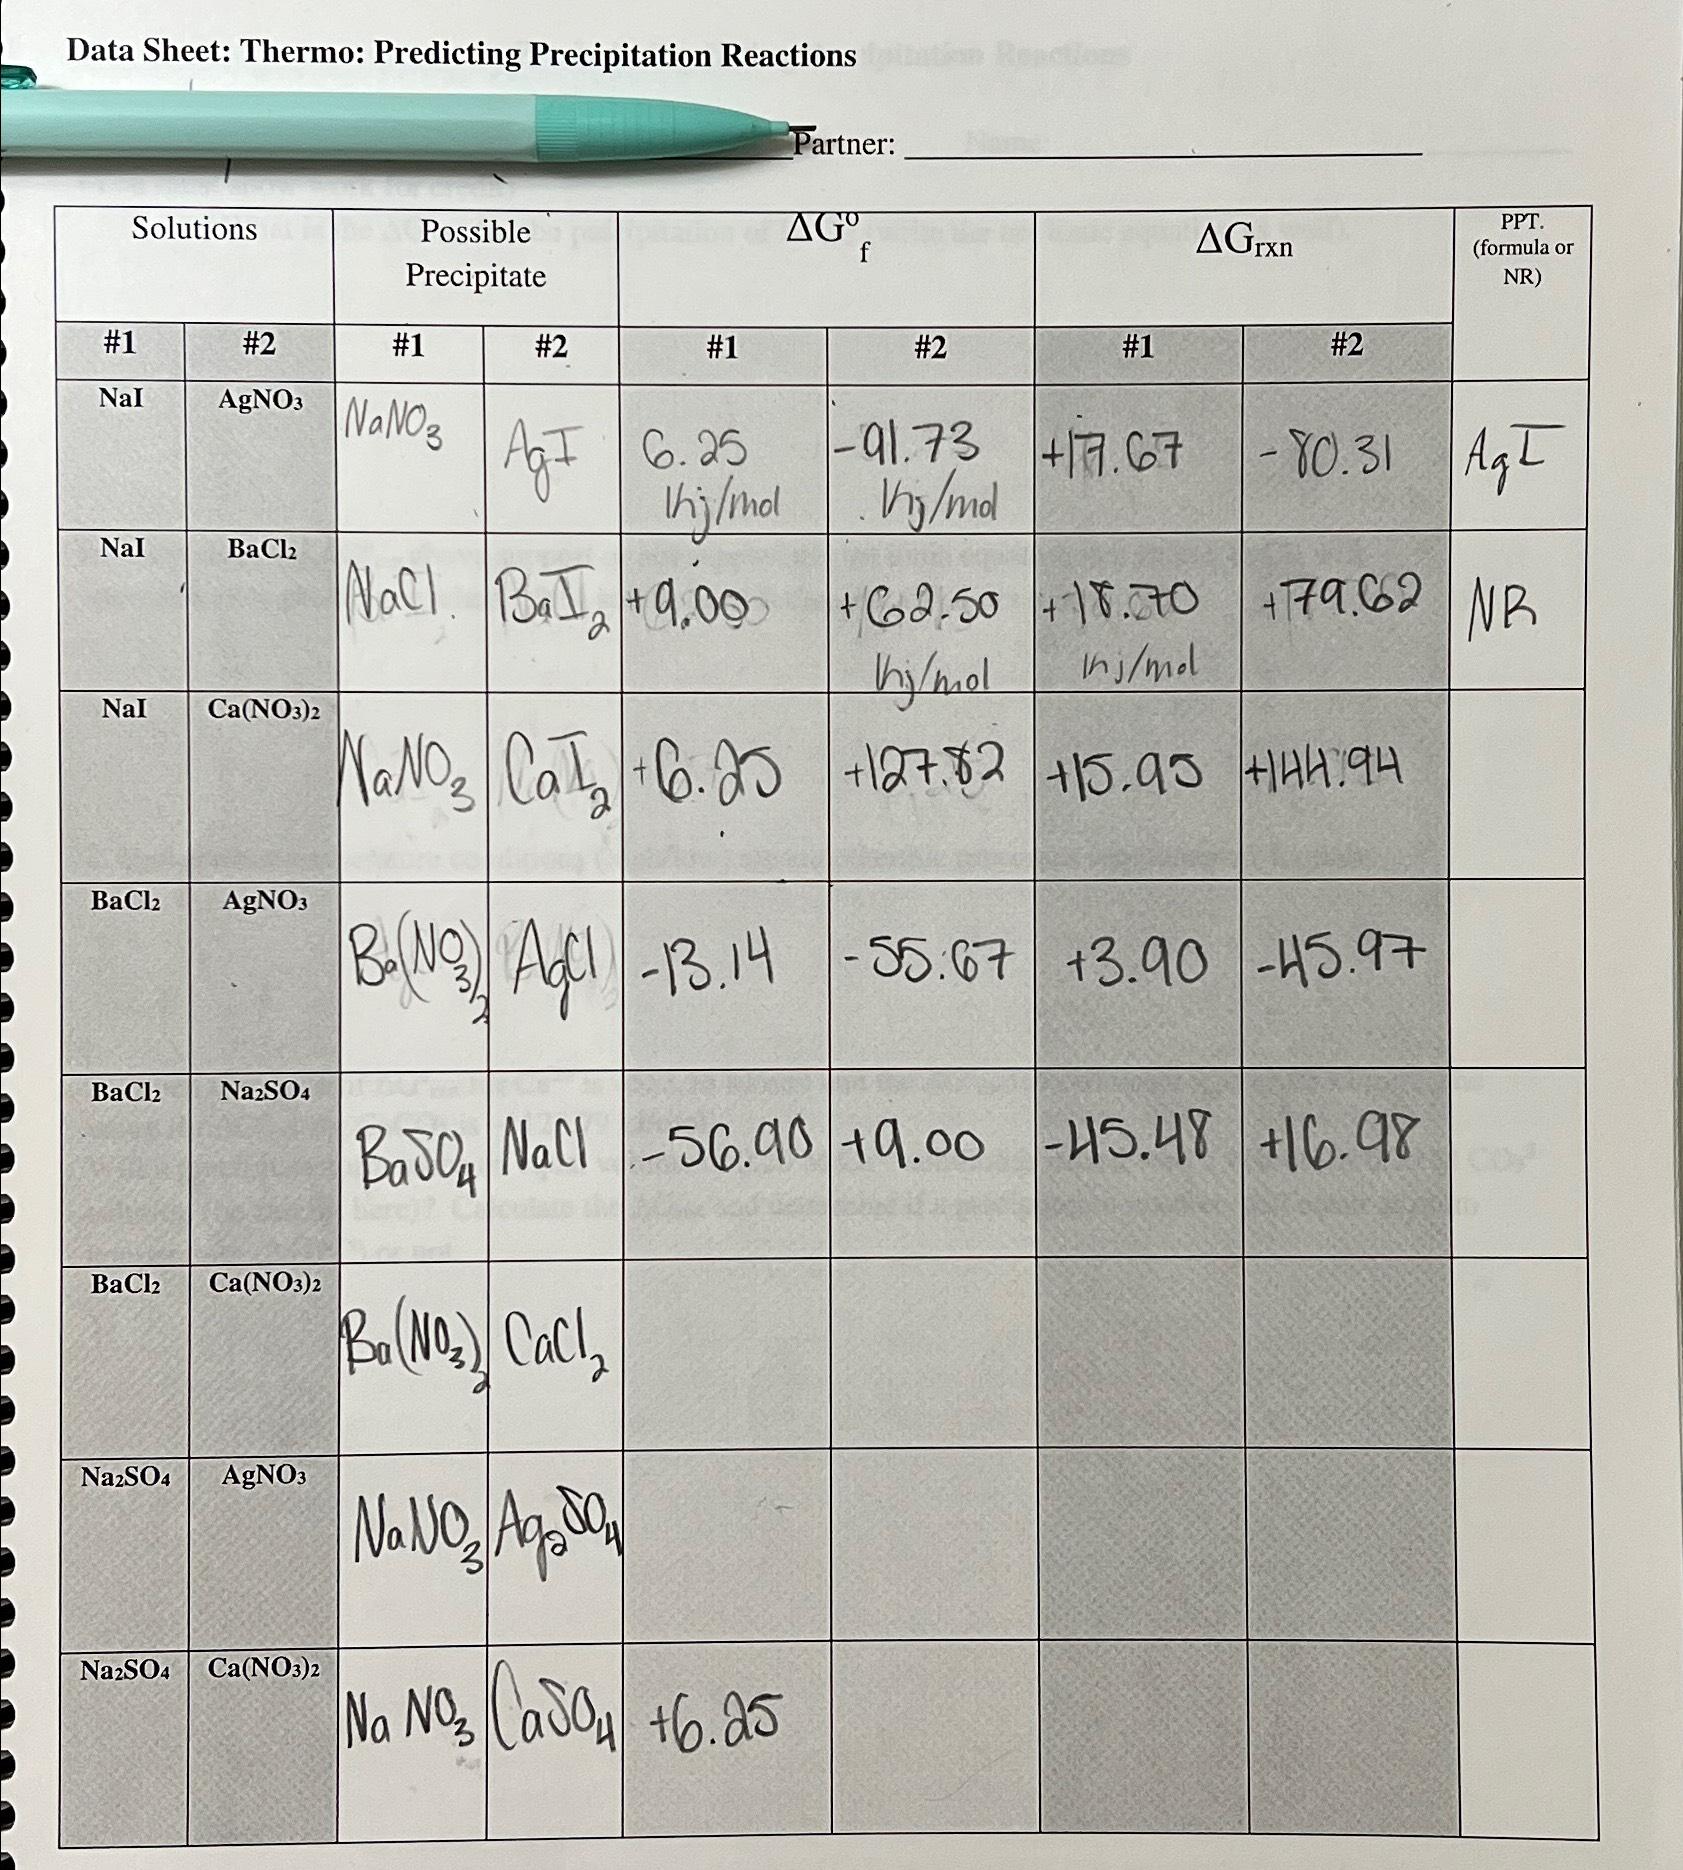 Data Sheet: Thermo: Predicting Precipitation Reactions
Partner:
Solutions Possible Precipitate ΔG°f ΔGrxn PPT. (formula or NR)
#1 #2 #1 #2 #1 #2 #1 #2
NaI AgNO3 NaNO3 AgI 6.25 kj/mol -91.73 kj/mol +17.67 -80.31 AgI
NaI BaCl2 NaCl BaI2 +9.00 +62.50 kj/mol +18.70 kj/mol +79.62 NR
NaI Ca(NO3)2 NaNO3 CaI2 +6.25 +127.82 +15.95 +144.94
BaCl2 AgNO3 Ba(NO3)2 AgCl -13.14 -55.67 +3.90 -45.97
BaCl2 Na2SO4 BaSO4 NaCl -56.90 +9.00 -45.48 +16.98
BaCl2 Ca(NO3)2 Ba(NO3)2 CaCl2
Na2SO4 AgNO3 NaNO3 Ag2SO4
Na2SO4 Ca(NO3)2 NaNO3 CaSO4 +6.25